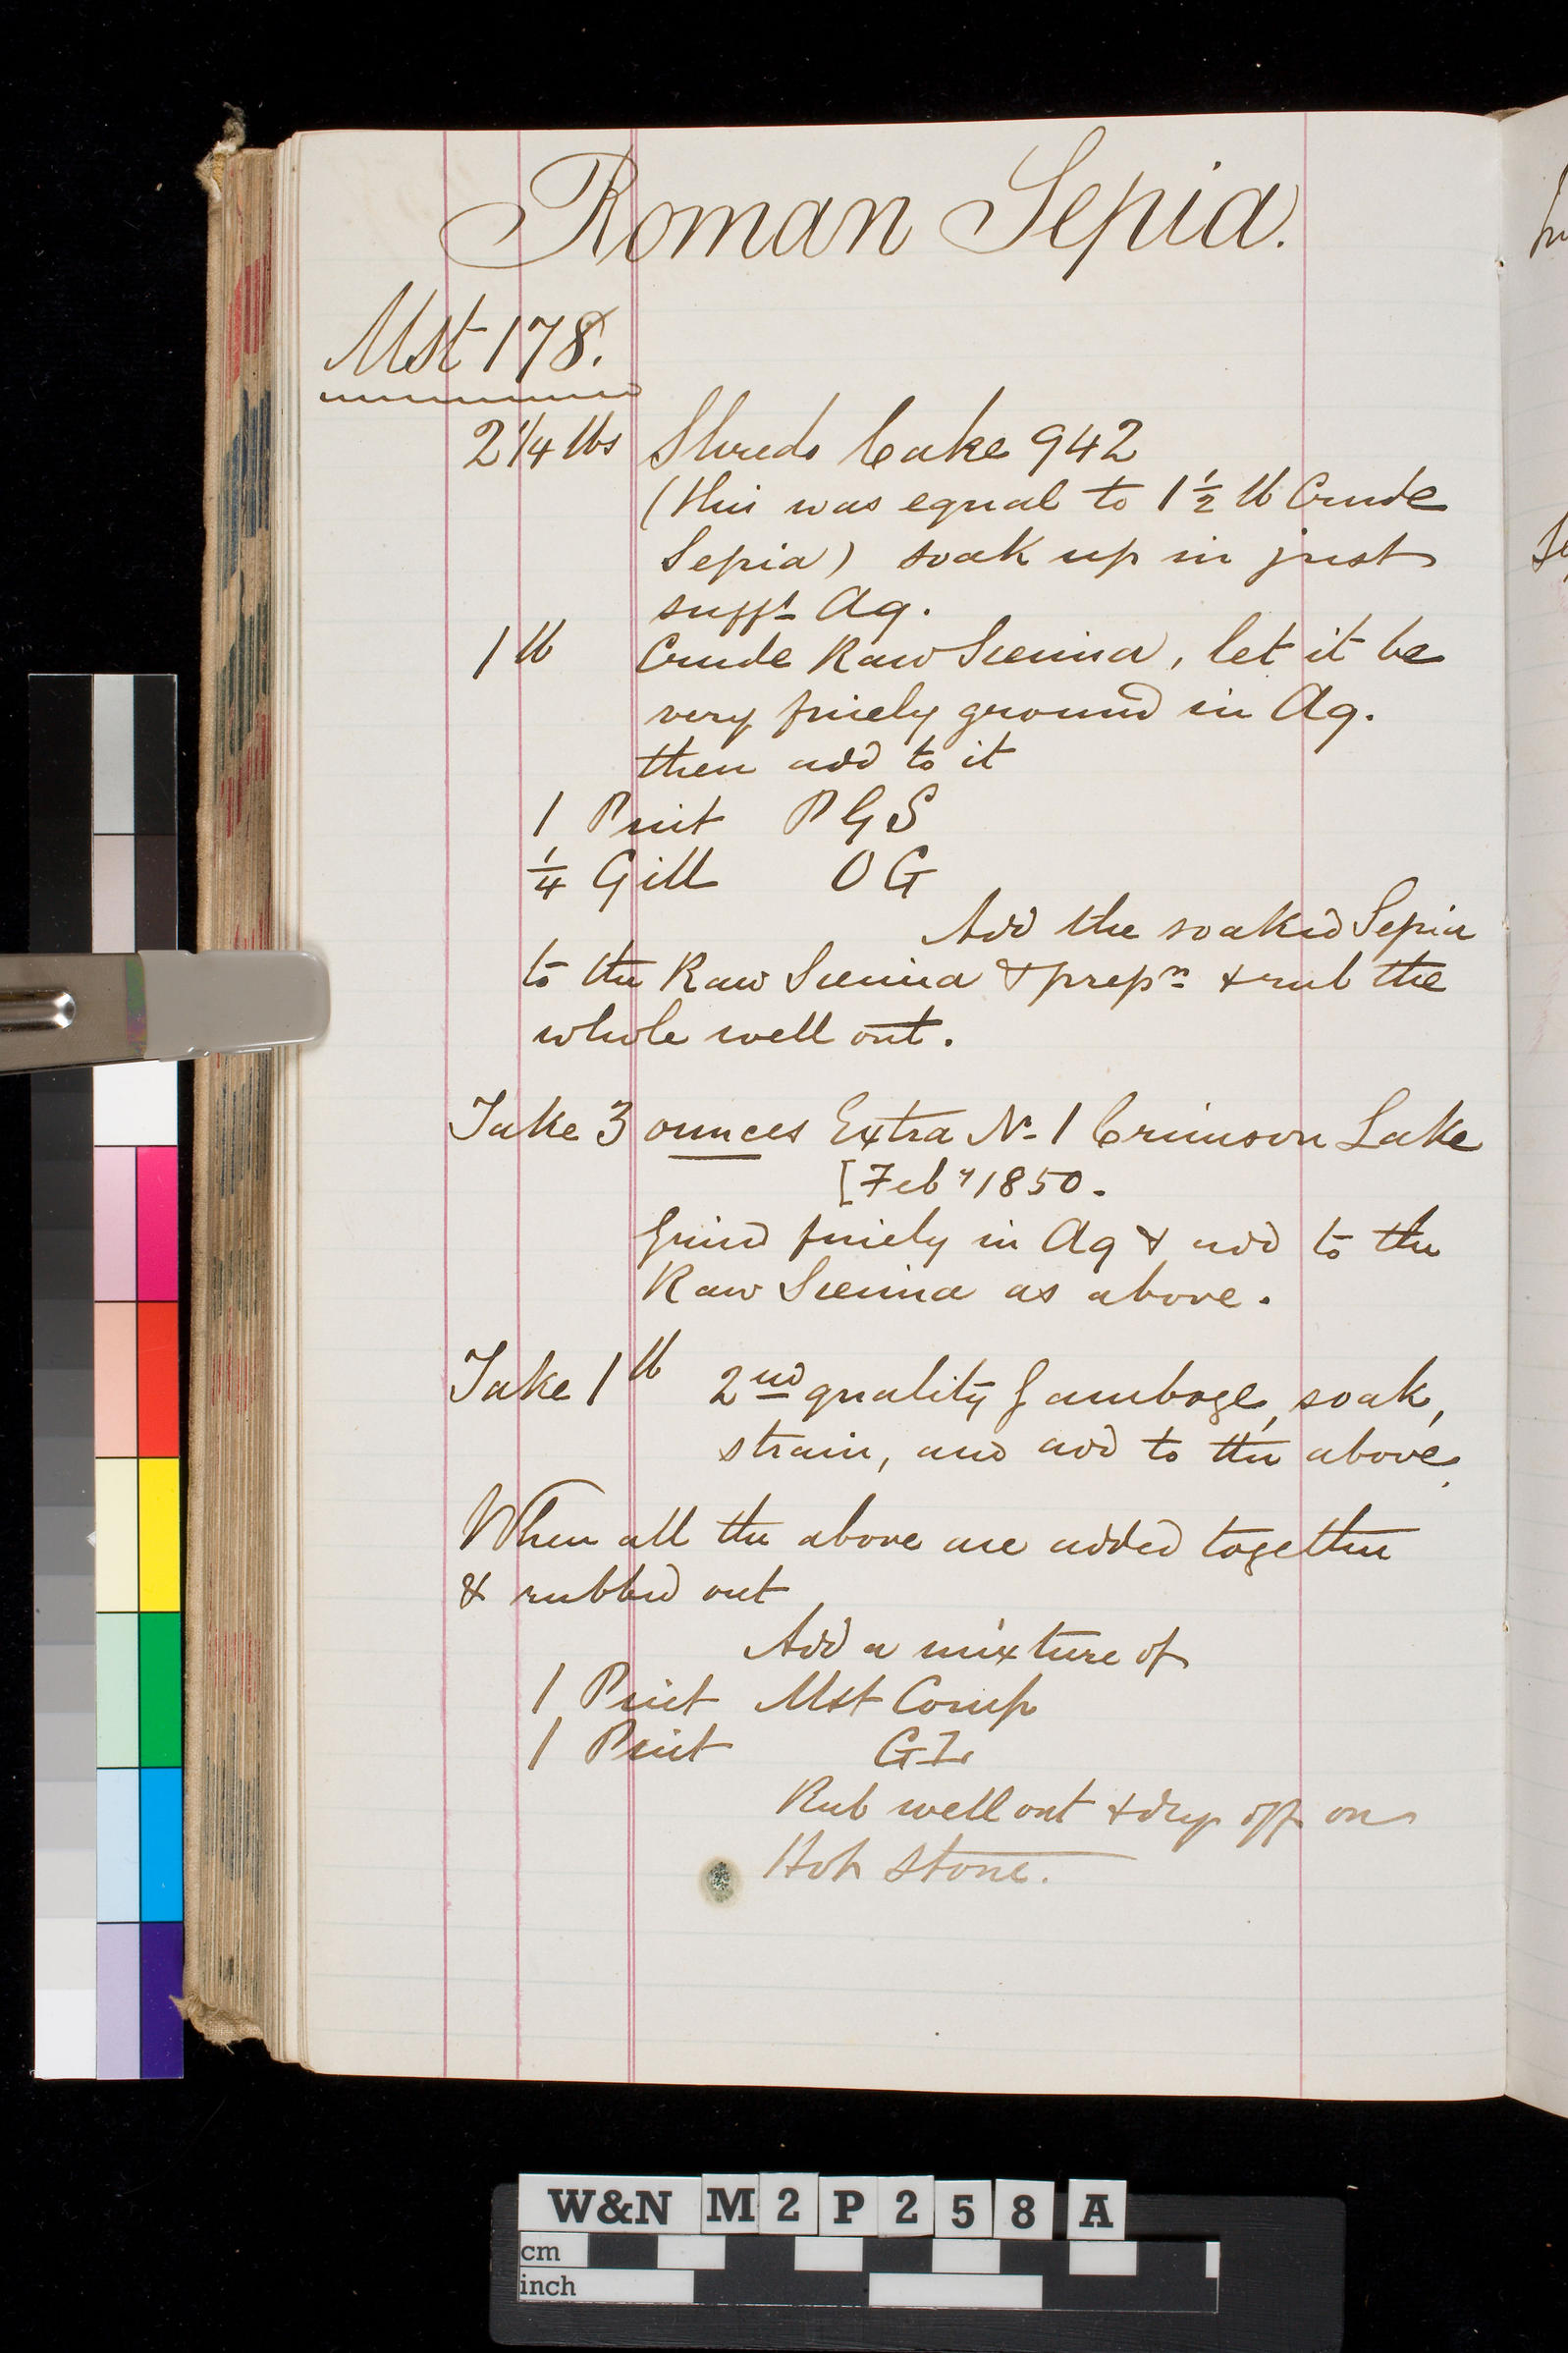 Roman Sepia.
Mst 178.
2 1/4 lbs Shreds Cake 942
(this was equal to 1 1/2 lb Crude
Sepia) soak up in just
sufft Aq.
1 lb Crude Raw Sienna, let it be
very finely ground in Aq.
then add to it
1 Pint PGS
1/4 Gill OG
Add the soaked Sepia
to the Raw Sienna & prepn & rub the
whole well out.
Take 3 ounces Extra No 1 Crimson Lake
[Feby 1850.
Grind finely in Aq & add to the
Raw Sienna as above.
Take 1 lb 2nd quality Gamboge, soak,
strain, and add to the above.
When all the above are added together
& rubbed out
Add a mixture of
1 Pint Mst Comp
1 Pint GL
Rub well out & dry off on
Hot Stone.
W&N M2P258A
cm
inch